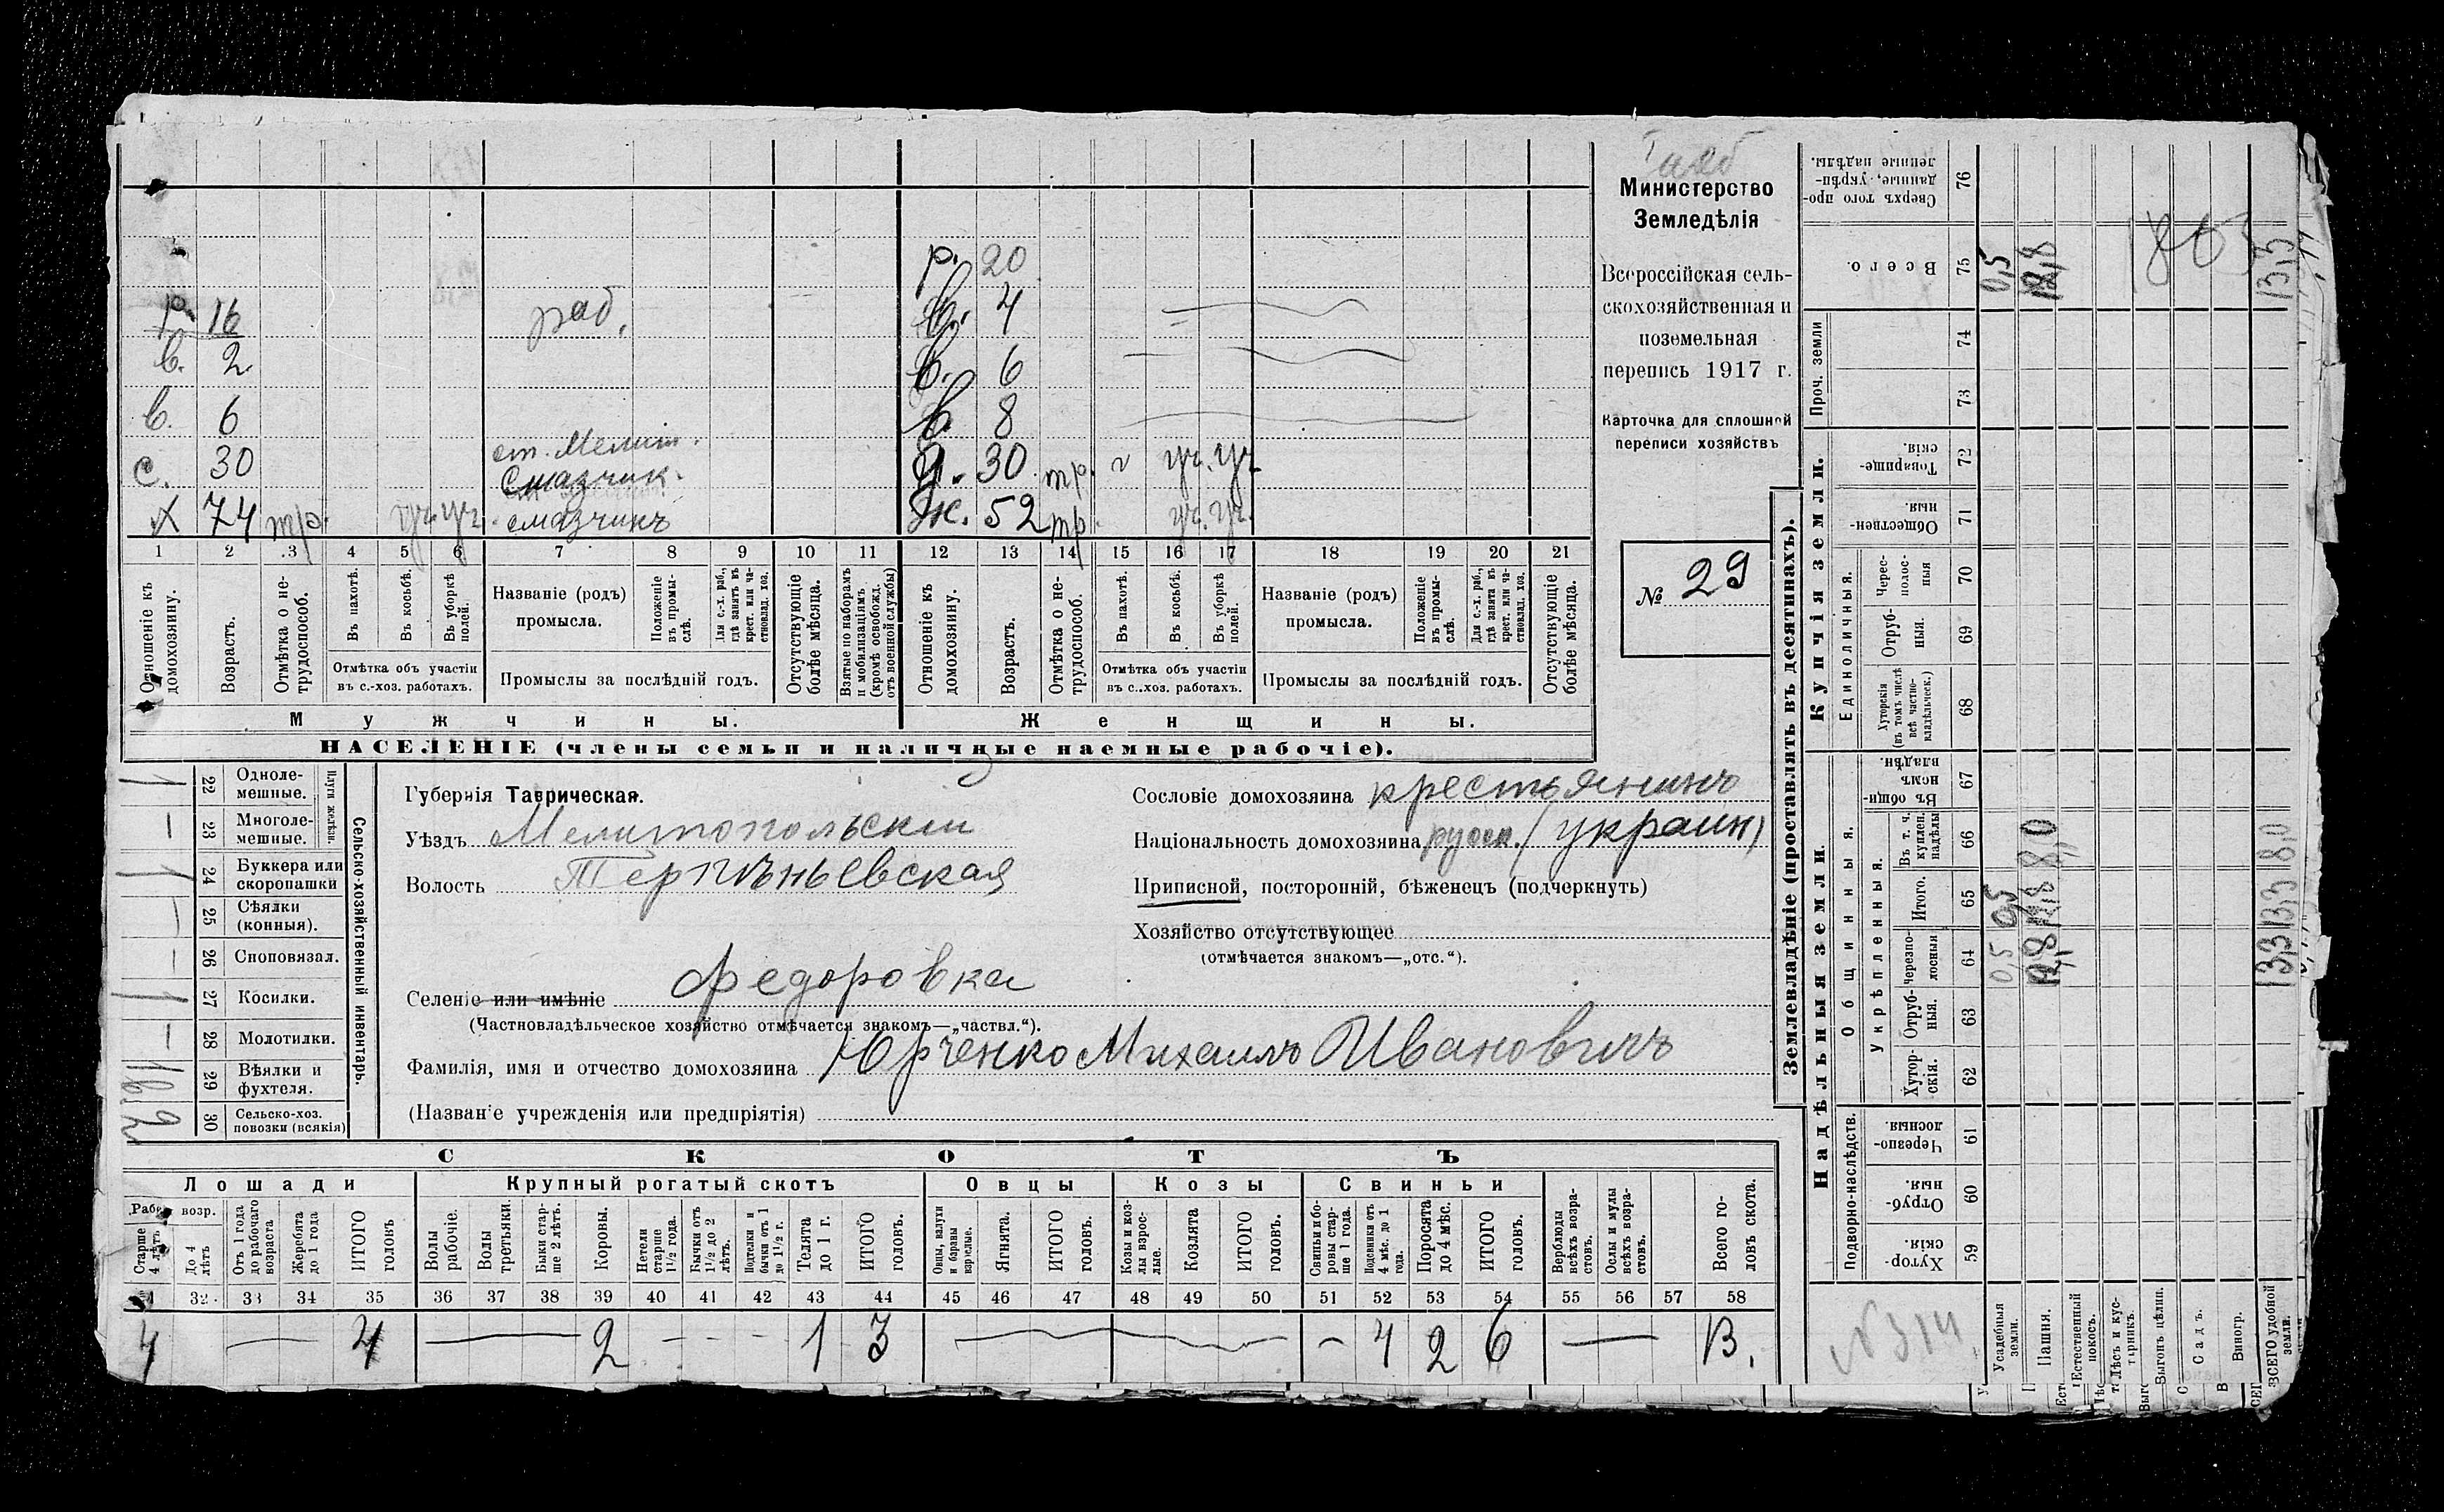 Министерство
Земледѣлія
Всероссійская сель-
скохозяйственная и
поземельная
перепись 1917 г.
Карточка для сплошной
переписи хозяйствъ
№ 29
р. 20
в. 4
р. 16 раб.
в. 2 в. 6
в. 6 в. 8
с. 30 ст. Мелит. Смазчик. 30 тр. уч. уч.
х 74 тр. уч. уч. смазчикъ ж. 52 тр. уч. уч.
1 2 3 4 5 6 7 8 9 10 11 12 13 14 15 16 17 18 19 20 21
Отношеніе къ домохозяину.
Возрастъ.
Отмѣтка о не-трудоспособ.
Въ пахотѣ.
Въ косьбѣ.
Въ уборкѣ полей.
Отмѣтка объ участіи въ с.-хоз. работахъ.
Названіе (родъ) промысла.
Положеніе въ промы-слѣ.
Для с.-х. раб., гдѣ занятъ въ крест. или ча-стновлад. хоз.
Промыслы за послѣдній годъ.
Отсутствующіе болѣе мѣсяца.
Взятые по наборамъ и мобилизаціямъ (кромѣ освобожд. отъ военной службы)
Отношеніе къ домохозяину.
Возрастъ.
Отмѣтка о не-трудоспособ.
Въ пахотѣ.
Въ косьбѣ.
Въ уборкѣ полей.
Отмѣтка объ участіи въ с.-хоз. работахъ.
Названіе (родъ) промысла.
Положеніе въ промы-слѣ.
Для с.-х. раб., гдѣ занята въ крест. или ча-стновлад. хоз.
Промыслы за послѣдній годъ.
Отсутствующіе болѣе мѣсяца.
Мужчины. Женщины.
НАСЕЛЕНІЕ (члены семьи и наличные наемные рабочіе).
Сельско-хозяйственный инвентарь.
Плуги желѣзн.
1 22 Одноле-мешные.
— 23 Многоле-мешные.
1 24 Буккера или скоропашки
— 25 Сѣялки (конныя).
— 26 Сноповязал.
1 27 Косилки.
— 28 Молотилки.
1 29 Вѣялки и фухтеля.
2 30 Сельско-хоз. повозки (всякія)
Губернія Таврическая.
Уѣздъ Мелитопольскій
Волость Терпѣньевская
Селеніе или имѣніе Федоровка
(Частновладѣльческое хозяйство отмѣчается знакомъ—„частвл.“).
Фамилія, имя и отчество домохозяина Юрченко Михаилъ Ивановичъ
(Названіе учрежденія или предпріятія)
Сословіе домохозяина крестьянинъ
Національность домохозяина русск. (украин)
Приписной, посторонній, бѣженецъ (подчеркнуть)
Хозяйство отсутствующее
(отмѣчается знакомъ—„отс.“).
СКОТЪ
Лошади Крупный рогатый скотъ Овцы Козы Свиньи
Рабоч. возр.
Старше 4 лѣтъ
До 4 лѣтъ
Отъ 1 года до рабочаго возраста
Жеребята до 1 года
ИТОГО головъ
Волы рабочіе.
Волы третьяки.
Быки стар-ше 2 лѣтъ.
Коровы.
Нетели старше 1½ года.
Бычки отъ 1½ до 2 лѣтъ.
Подтелки и бычки отъ 1 до 1½ г.
Телята до 1 г.
ИТОГО головъ.
Овцы, валухи и бараны взрослые.
Ягнята.
ИТОГО головъ.
Козы и коз-лы взрос-лые.
Козлята
ИТОГО головъ.
Свиньи и бо-ровы стар-ше 1 года.
Подсвинки отъ 4 мѣс. до 1 года.
Поросята до 4 мѣс.
ИТОГО головъ.
Верблюды всѣхъ возра-стовъ.
Ослы и мулы всѣхъ возра-стовъ.
Всего го-ловъ скота.
32 33 34 35 36 37 38 39 40 41 42 43 44 45 46 47 48 49 50 51 52 53 54 55 56 57 58
4 — 4 — 2 - - - 1 3 — — 4 2 6 — 13.
Землевладѣніе (проставлять въ десятинахъ).
Надѣльныя земли. Купчія земли. Проч. земли
Подворно-наслѣдств. Общинныя. Укрѣпленныя. Единоличныя.
59 Хутор-скія.
60 Отруб-ныя.
61 Черезпо-лосныя
62 Хутор-скія.
63 Отруб-ныя.
64 Черезпо-лосныя
65 Итого.
66 Въ т. ч. куплен. надѣлы
67 Въ общи-номъ владѣн.
68 Хуторскія (въ томъ числѣ всѣ частно-владѣльческ.)
69 Отруб-ныя.
70 Черес-полос-ныя
71 Обществен-ныя.
72 Товарище-скія.
73
74
75 Всего.
76 Сверхъ того про-данные, укрѣп-ленные надѣлы.
Усадебныя земли. 0,5 0,5 0,5
Пашня. 12,8 12,8 8,0 12,8
Естественный покосъ.
Лѣсъ и кус-тарникъ.
Выгонъ цѣлин.
Садъ.
Виногр.
ВСЕГО удобной земли. 13,3 13,3 8,0 13,3
№ 314